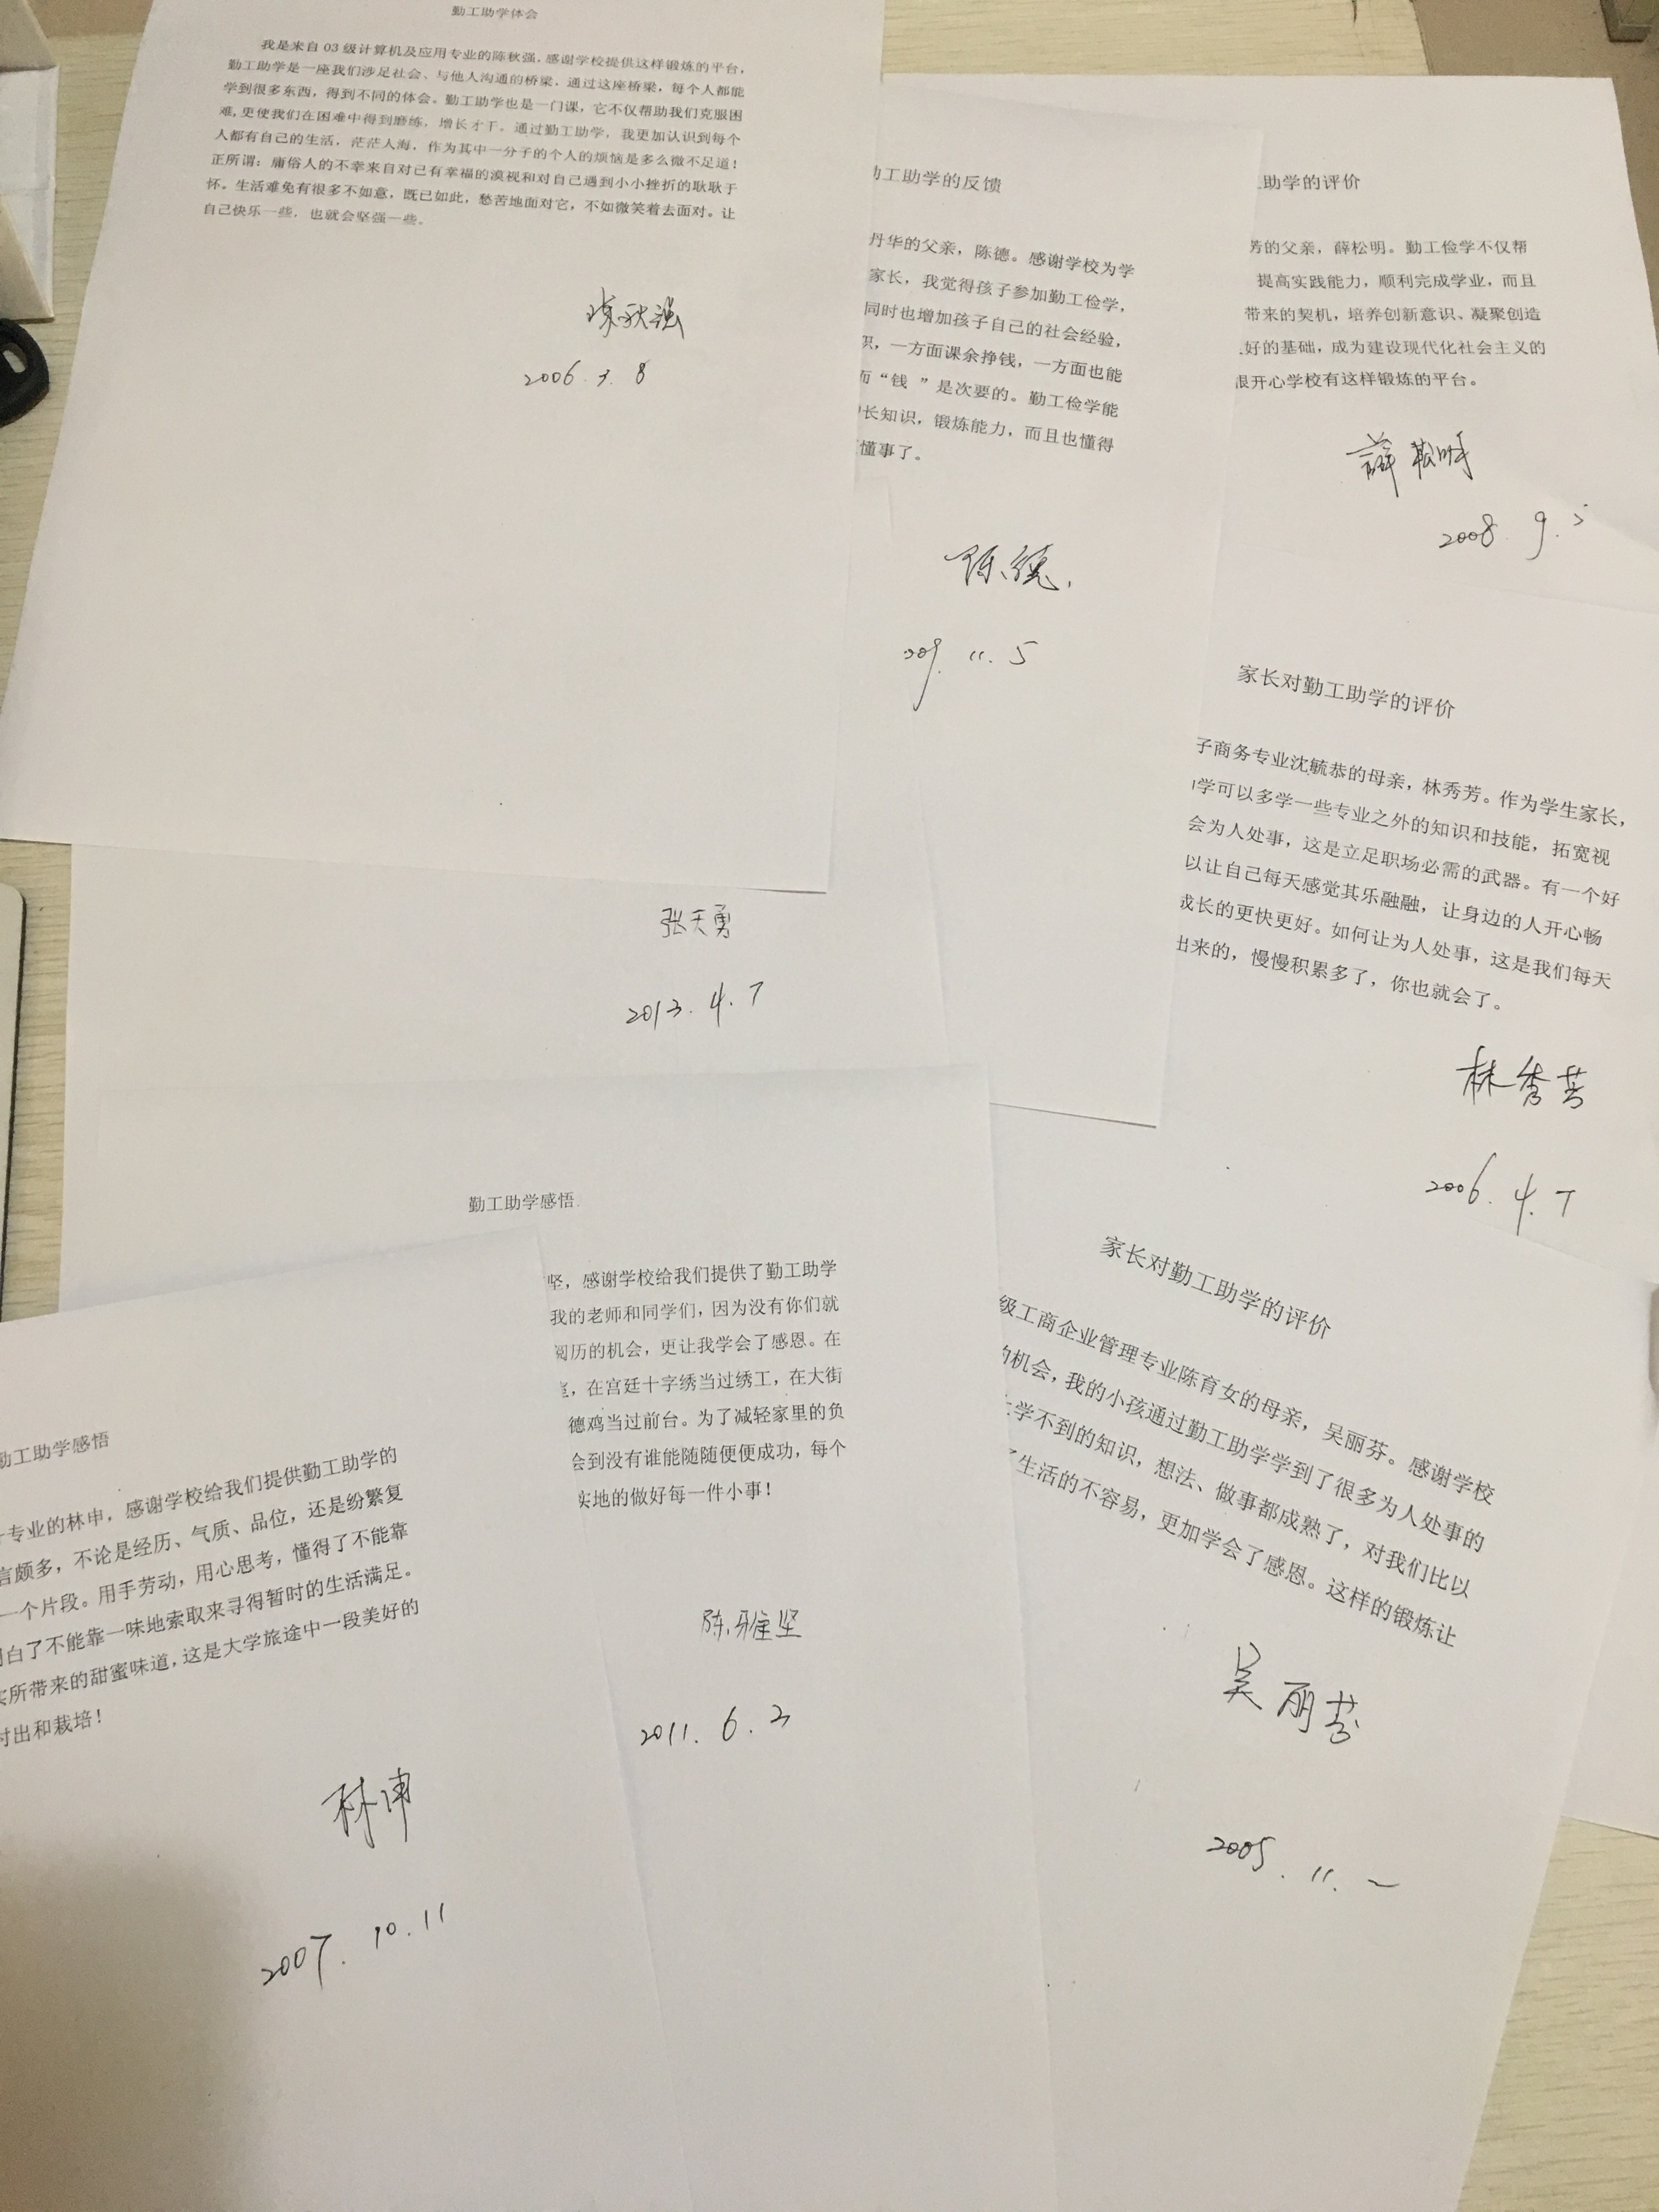 勤工助学体会
我是来自 03 级计算机及应用专业的陈秋强，感谢学校提供这样锻炼的平台，
勤工助学是一座我们涉足社会、与他人沟通的桥梁，通过这座桥梁，每个人都能
学到很多东西，得到不同的体会。勤工助学也是一门课，它不仅帮助我们克服困
难，更使我们在困难中得到磨练，增长才干。通过勤工助学，我更加认识到每个
人都有自己的生活，茫茫人海，作为其中一分子的个人的烦恼是多么微不足道！
正所谓：庸俗人的不幸来自对已有幸福的漠视和对自己遇到小小挫折的耿耿于
怀。生活难免有很多不如意，既已如此，愁苦地面对它，不如微笑着去面对。让
自己快乐一些，也就会坚强一些。
陈秋强
2006.3.8
工助学的反馈
丹华的父亲，陈德。感谢学校为学
家长，我觉得孩子参加勤工俭学，
同时也增加孩子自己的社会经验，
职，一方面课余挣钱，一方面也能
而“钱 ”是次要的。勤工俭学能
长知识，锻炼能力，而且也懂得
懂事了。
陈德
11.5
助学的评价
芳的父亲，薛松明。勤工俭学不仅帮
提高实践能力，顺利完成学业，而且
带来的契机，培养创新意识、凝聚创造
好的基础，成为建设现代化社会主义的
很开心学校有这样锻炼的平台。
薛松明
2008.9.
家长对勤工助学的评价
子商务专业沈毓恭的母亲，林秀芳。作为学生家长，
学可以多学一些专业之外的知识和技能，拓宽视
会为人处事，这是立足职场必需的武器。有一个好
以让自己每天感觉其乐融融，让身边的人开心畅
成长的更快更好。如何让为人处事，这是我们每天
出来的，慢慢积累多了，你也就会了。
林秀芳
2006.4.7
张天勇
2013.4.7
勤工助学感悟
坚，感谢学校给我们提供了勤工助学
我的老师和同学们，因为没有你们就
阅历的机会，更让我学会了感恩。在
，在宫廷十字绣当过绣工，在大街
德鸡当过前台。为了减轻家里的负
会到没有谁能随随便便成功，每个
实地的做好每一件小事！
陈雅坚
2011.6.2
家长对勤工助学的评价
级工商企业管理专业陈育女的母亲，吴丽芬。感谢学校
的机会，我的小孩通过勤工助学学到了很多为人处事的
学不到的知识，想法、做事都成熟了，对我们比以
生活的不容易，更加学会了感恩。这样的锻炼让
吴丽芬
2005.11.
勤工助学感悟
专业的林申，感谢学校给我们提供勤工助学的
言颇多，不论是经历、气质、品位，还是纷繁复
一个片段。用手劳动，用心思考，懂得了不能靠
明白了不能靠一味地索取来寻得暂时的生活满足。
实所带来的甜蜜味道，这是大学旅途中一段美好的
付出和栽培！
林申
2007.10.11